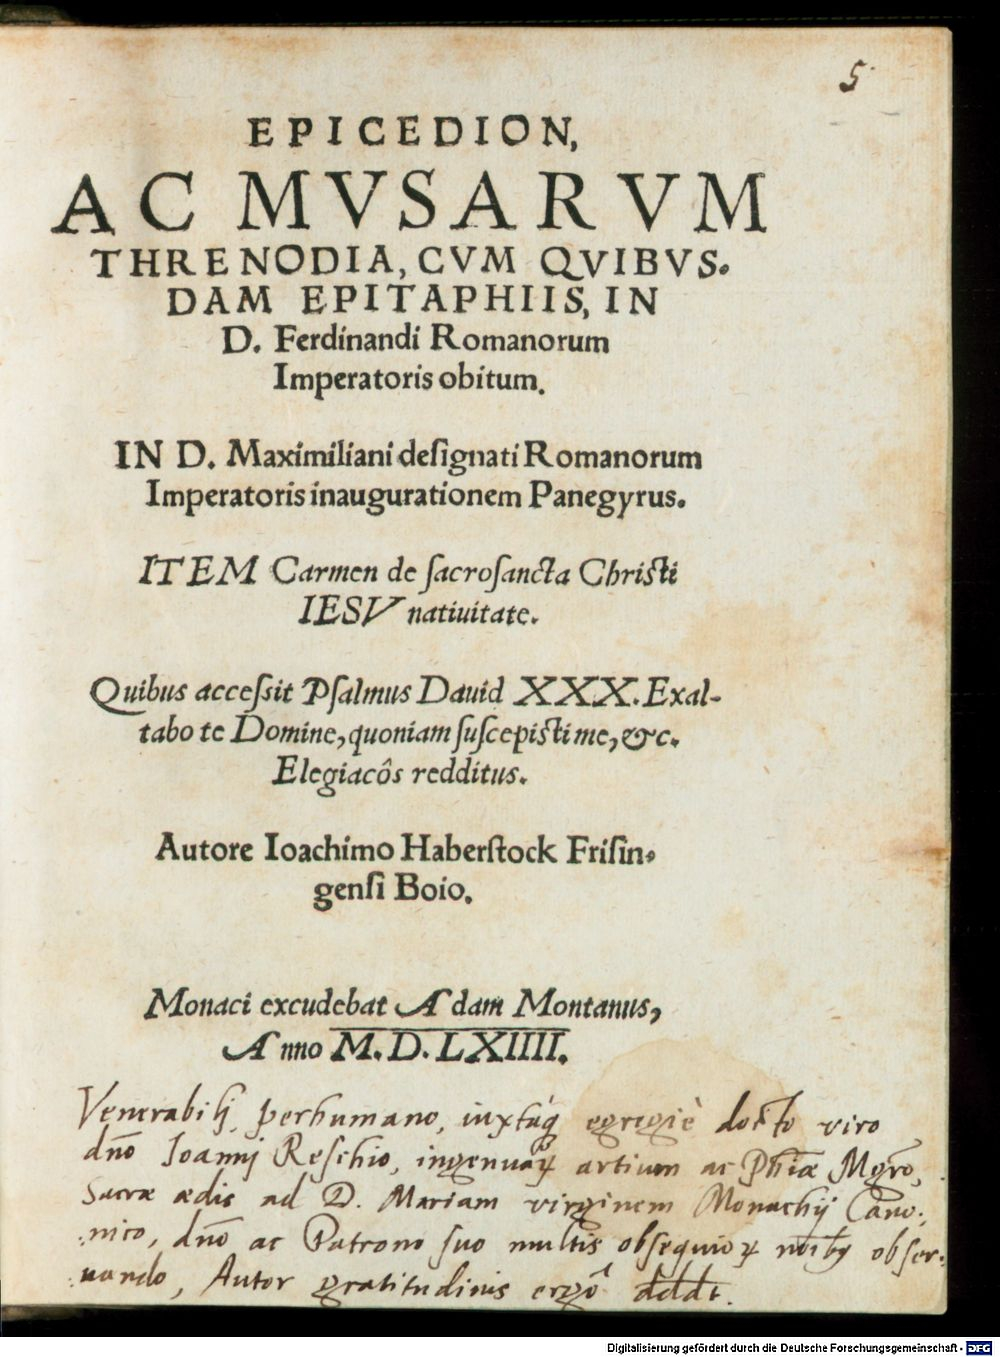 5
EPICEDION,
AC MVSARVM
THRENODIA, CVM QVIBVS-
DAM EPITAPHIIS, IN
D. Ferdinandi Romanorum
Imperatoris obitum.
IN D. Maximiliani deſignati Romanorum
Imperatoris inaugurationem Panegyrus.
ITEM Carmen de ſacroſancta Chriſti
IESV natiuitate.
Quibus acceſsit Pſalmus Dauid XXX. Exal-
tabo te Domine, quoniam ſuſcepiſti me, &c.
Elegiacôs redditus.
Autore Ioachimo Haberſtock Friſin-
genſi Boio.
Monaci excudebat Adam Montanus,
Anno M.D.LXIIII.
Venerabilj, perhumano, iuxtaq́ egregiè docto viro
dn̄o Ioannj Reschio, ingenuaꝝ artium ac Phīæ Mgr̄o,
Sacræ ædis ad D. Mariam virginem Monachij Cano:
:nico, dn̄o ac Patrono ſuo multis obſequioꝝ obſer:
:uando, Autor gratitudinis ergô dddt.
Digitalisierung gefördert durch die Deutsche Forschungsgemeinschaft - DFG